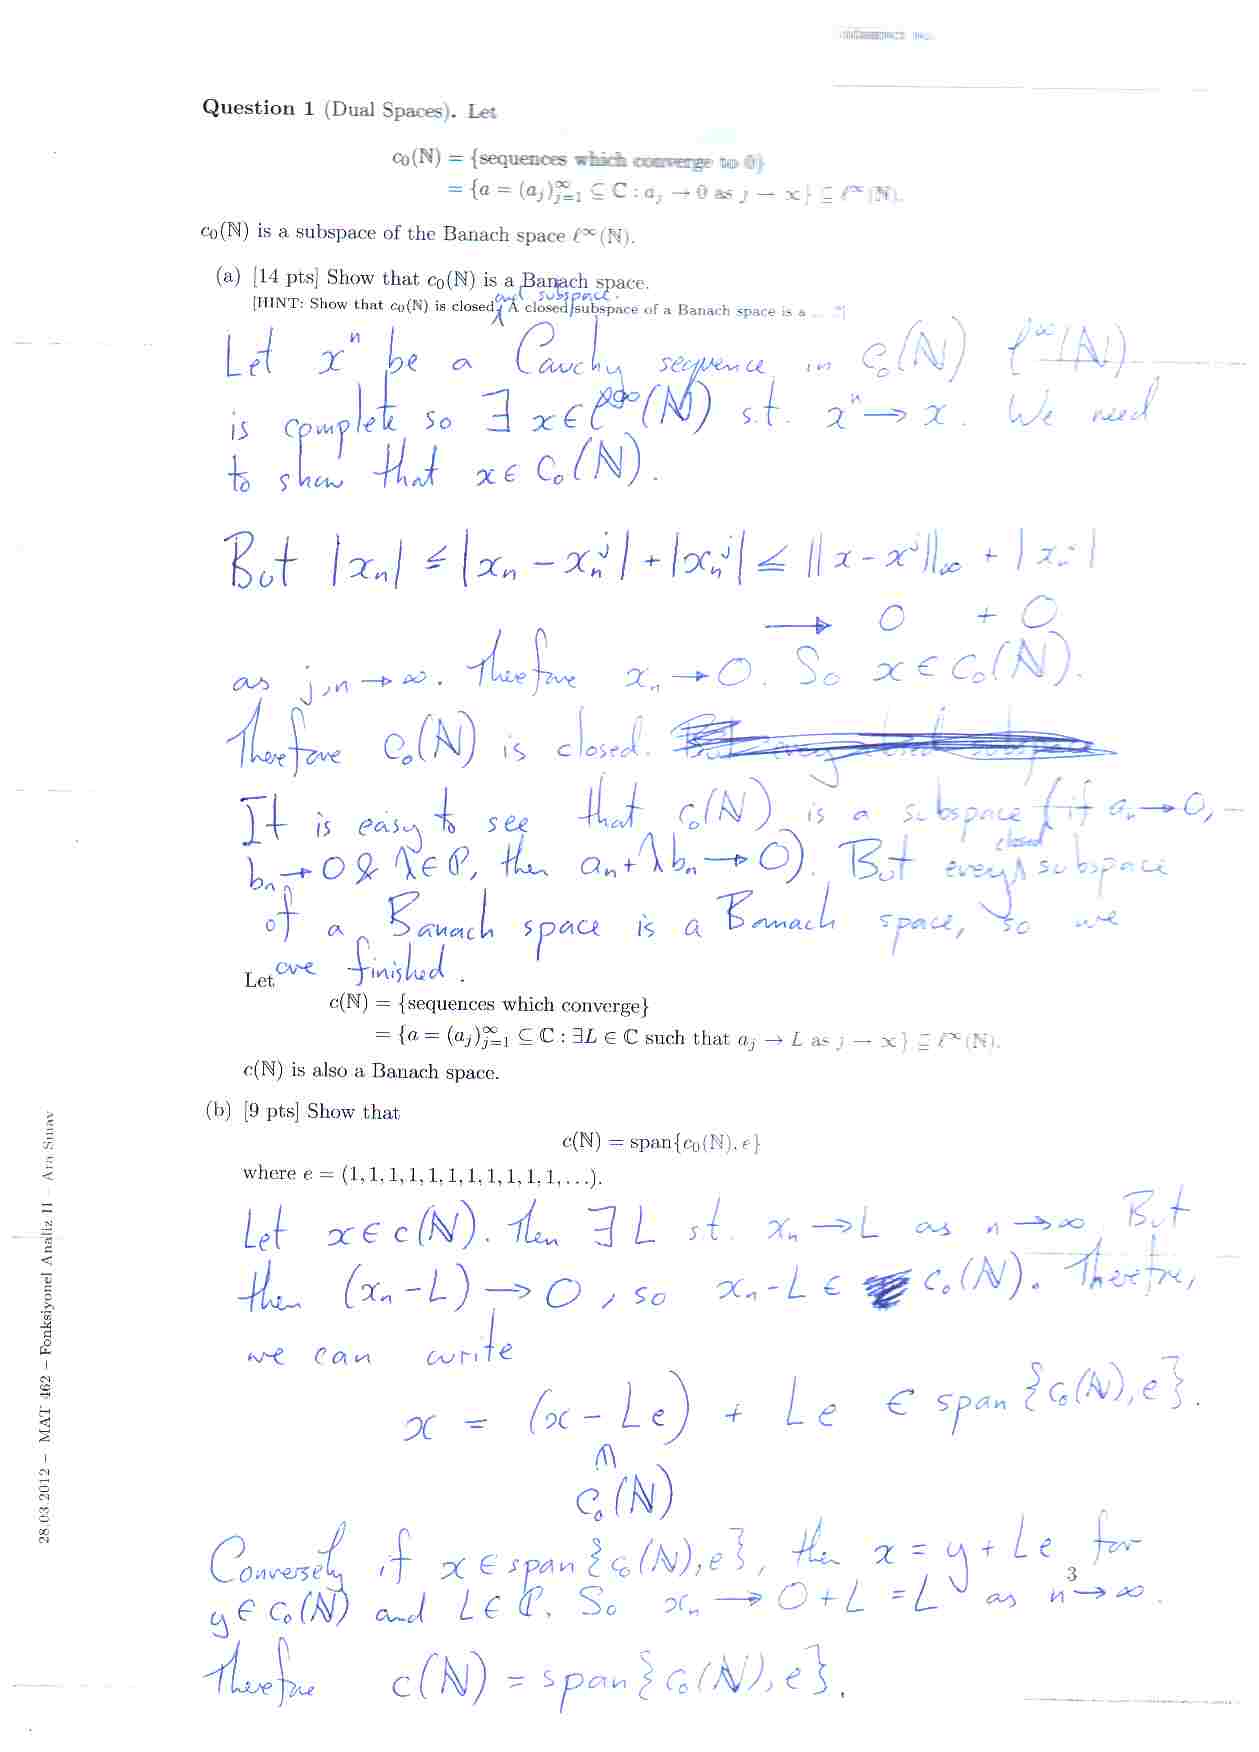 Question 1 (Dual Spaces). Let
c₀(ℕ) = {sequences which converge to 0}
= {a = (aⱼ)∞ⱼ₌₁ ⊆ ℂ : aⱼ → 0 as j → ∞} ⊆ ℓ∞(ℕ).
c₀(ℕ) is a subspace of the Banach space ℓ∞(ℕ).
(a) [14 pts] Show that c₀(ℕ) is a Banach space.
and subspace.
[HINT: Show that c₀(ℕ) is closed. A closed subspace of a Banach space is a ... ?]
Let xⁿ be a Cauchy sequence in c₀(ℕ) ℓ∞(ℕ)
is complete so ∃ x ∈ ℓ∞(ℕ) s.t. xⁿ → x. We need
to show that x ∈ c₀(ℕ).
But |xₙ| ≤ |xₙ − xₙʲ| + |xₙʲ| ≤ ‖x − xʲ‖∞ + |xₙʲ|
→ 0 + 0
as j,n → ∞. Therefore xₙ → 0. So x ∈ c₀(ℕ).
Therefore c₀(ℕ) is closed.
It is easy to see that c₀(ℕ) is a subspace (if aₙ → 0,
closed
bₙ → 0 & λ ∈ ℂ, then aₙ + λbₙ → 0). But every subspace
of a Banach space is a Banach space, so we
are finished.
Let
c(ℕ) = {sequences which converge}
= {a = (aⱼ)∞ⱼ₌₁ ⊆ ℂ : ∃L ∈ ℂ such that aⱼ → L as j → ∞} ⊆ ℓ∞(ℕ).
c(ℕ) is also a Banach space.
(b) [9 pts] Show that
c(ℕ) = span{c₀(ℕ), e}
where e = (1, 1, 1, 1, 1, 1, 1, 1, 1, 1, 1, . . .).
Let x ∈ c(ℕ). Then ∃ L s.t. xₙ → L as n → ∞. But
then (xₙ − L) → 0, so xₙ − L ∈ c₀(ℕ). Therefore,
we can write
x = (x − Le) + Le ∈ span{c₀(ℕ), e}.
∈
c₀(ℕ)
Conversely if x ∈ span{c₀(ℕ), e}, then x = y + Le for
y ∈ c₀(ℕ) and L ∈ ℂ. So xₙ → 0 + L = L as n → ∞.
3
Therefore c(ℕ) = span{c₀(ℕ), e}.
28.03.2012 – MAT 462 – Fonksiyonel Analiz II – Ara Sınav